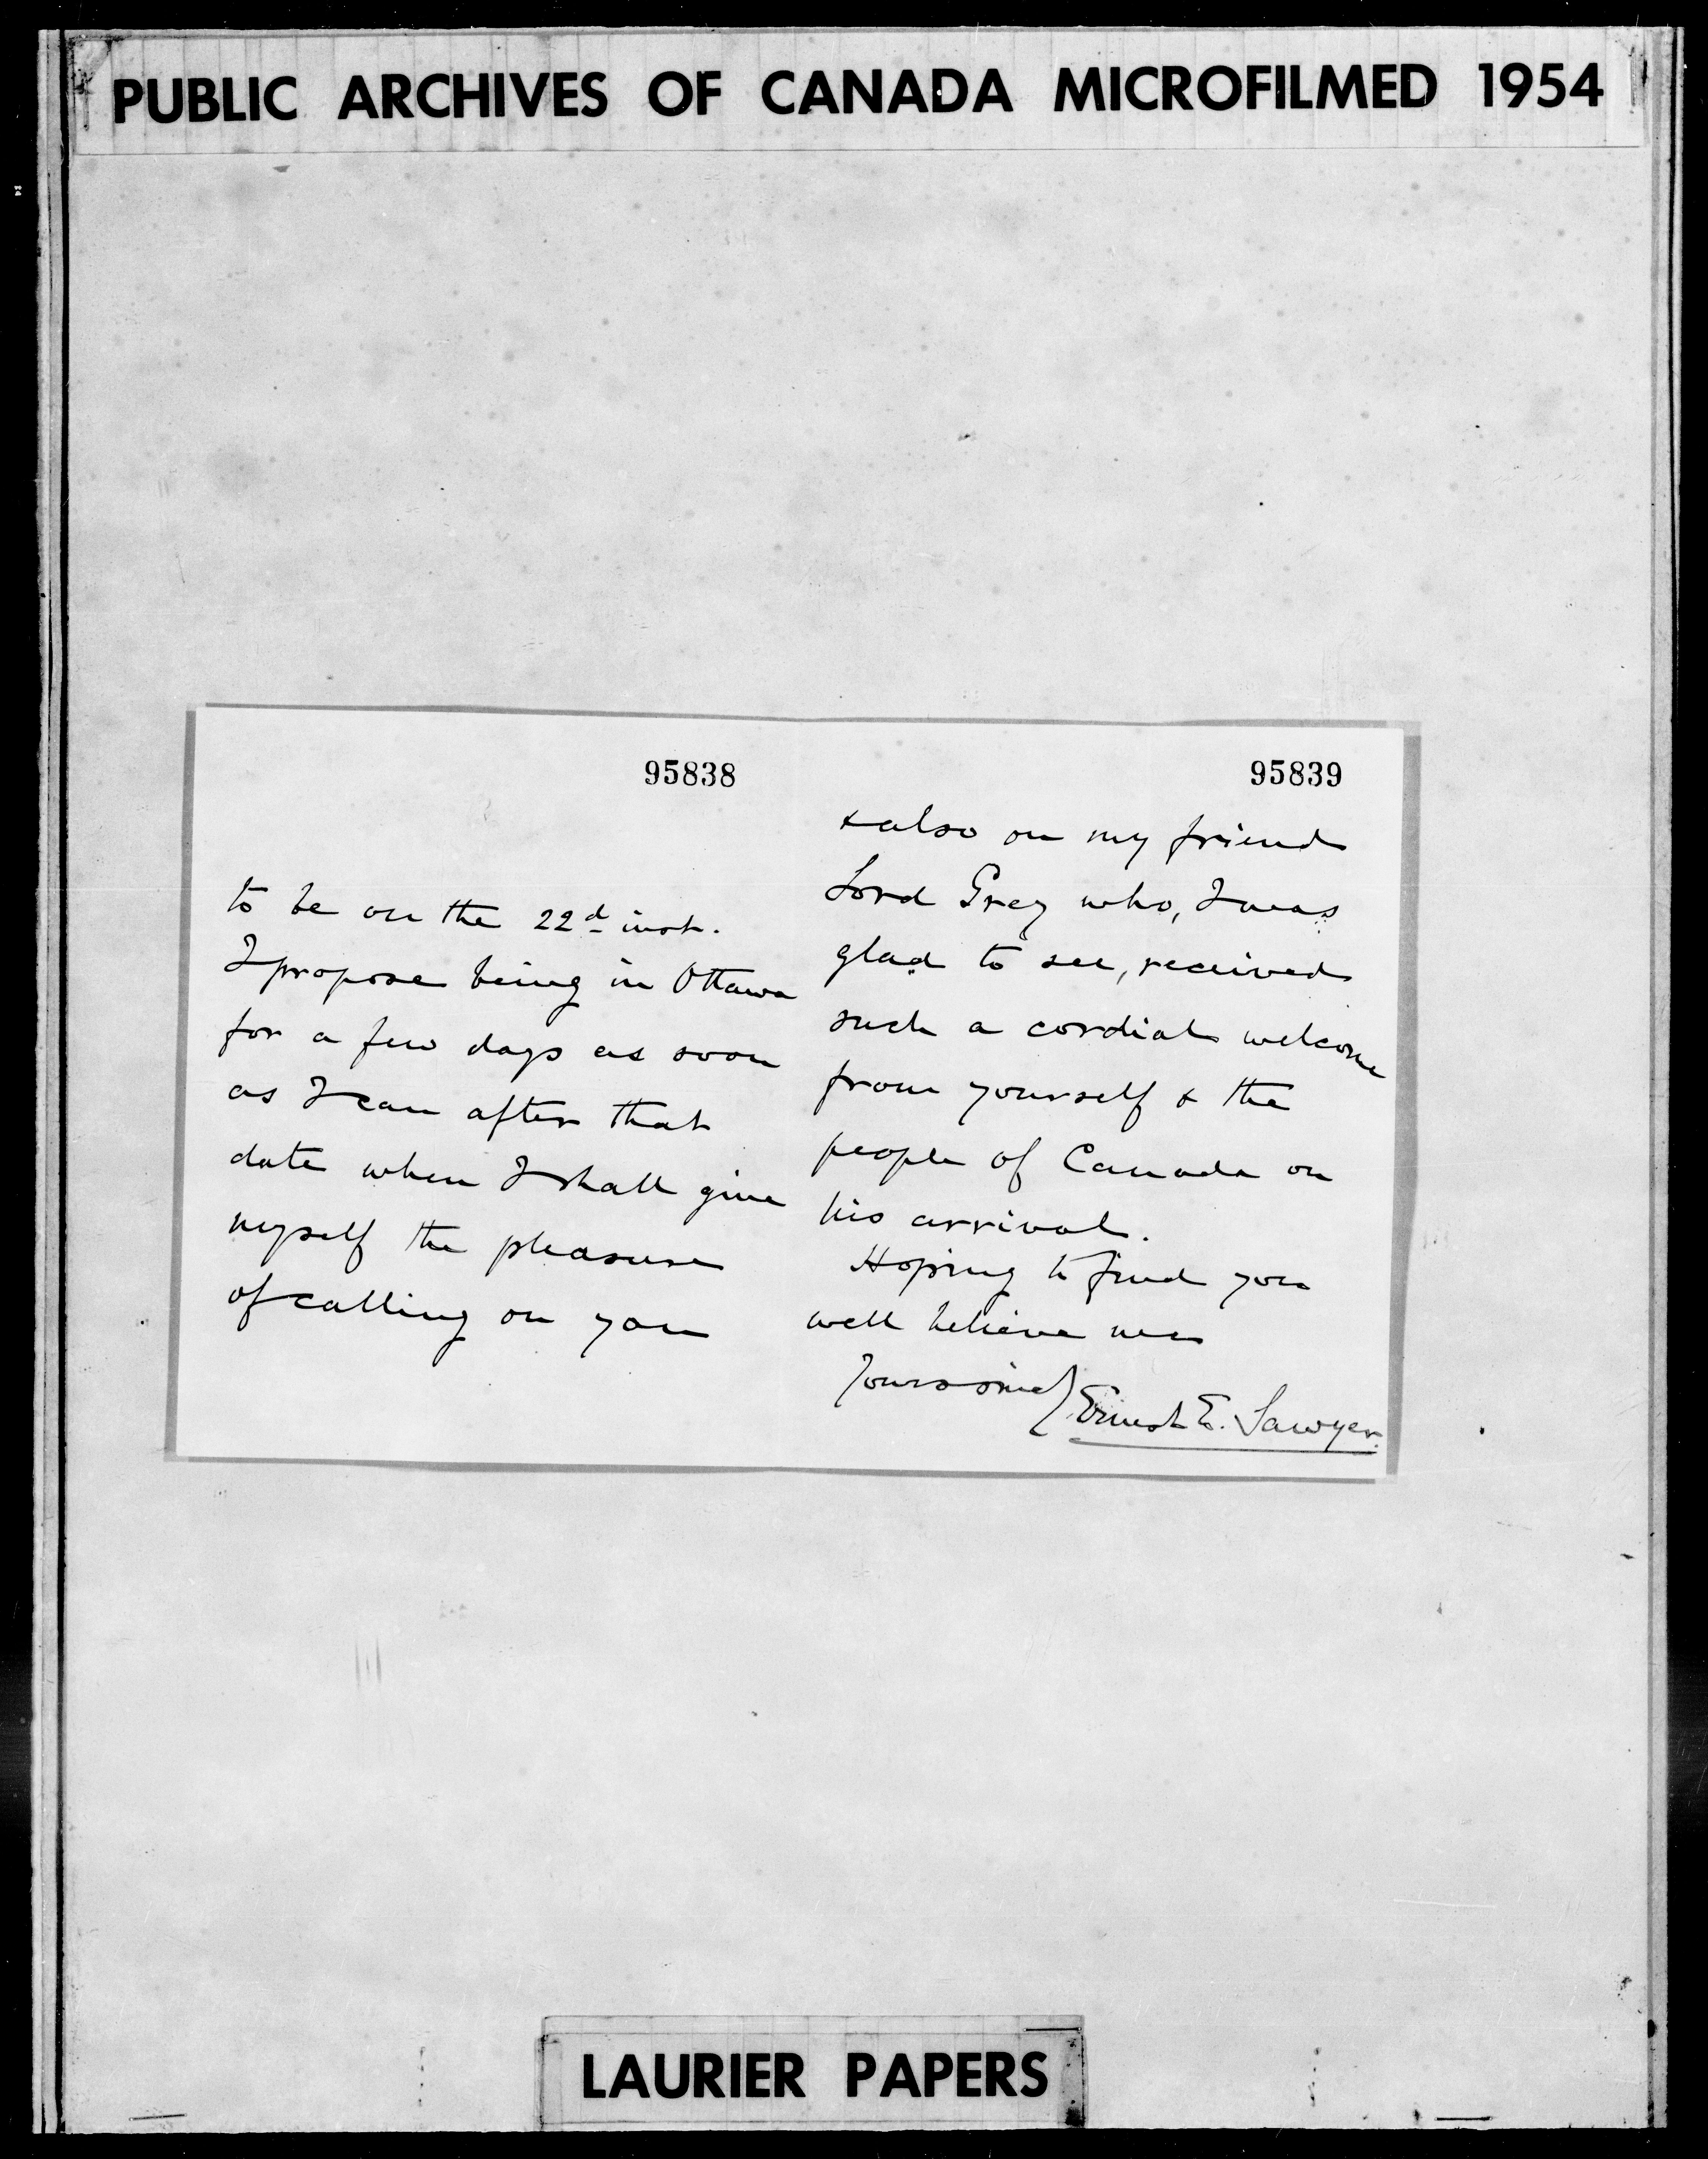 PUBLIC ARCHIVES OF CANADA MICROFILMED 1954
95838
to be on the 22d inst.
I propose being in Ottawa
for a few days as soon
as I can after that
date when I shall give
myself the pleasure
of calling on you
95839
& also on my friend
Lord Grey who, I was
glad to see, received
such a cordial welcome
from yourself & the
people of Canada on
his arrival.
Hoping to find you
well believe me
Yours sincly
Ernest E. Sawyer.
LAURIER PAPERS